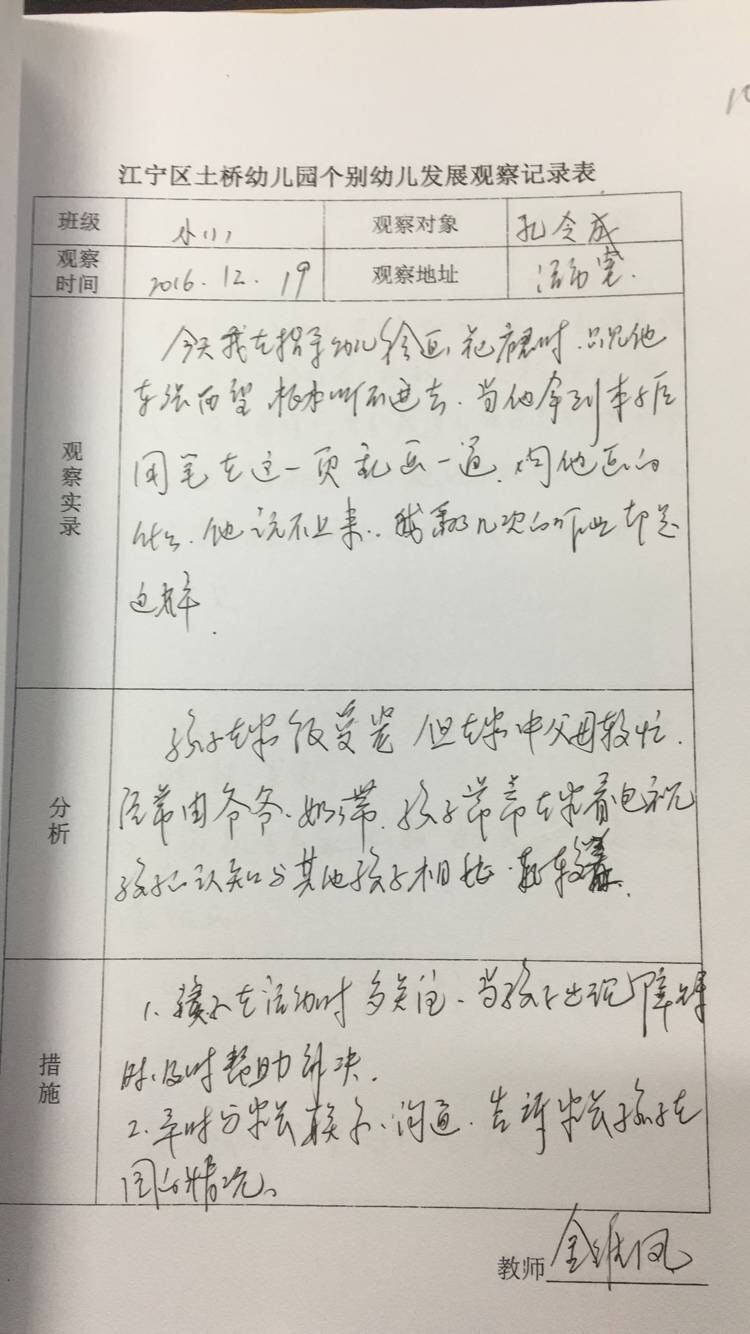 江宁区土桥幼儿园个别幼儿发展观察记录表
班级 小(1) 观察对象 孔令成
观察时间 2016.12.19 观察地址 活动室.
观察实录
今天我在指导幼儿绘画 时,只见他
东张西望,根本听不进去.当他拿到本子后
用笔在这一页乱画一道.问他画的
什么,他说不上来. 几次的作业都是
这样.
分析
孩子在家很受宠 但在家中父母较忙.
经常由爷爷、奶奶带.孩子常常在家看电视
孩子认知与其他孩子相比.
措施
1、 在活动时多关注、当孩子出现障碍
时,及时帮助解决.
2、平时与家长联系、沟通,告诉家长孩子在
园的情况。
教师 金维凤